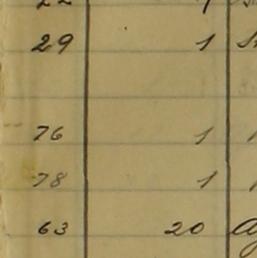 22 1
29 1
76 1
78 1
63 20